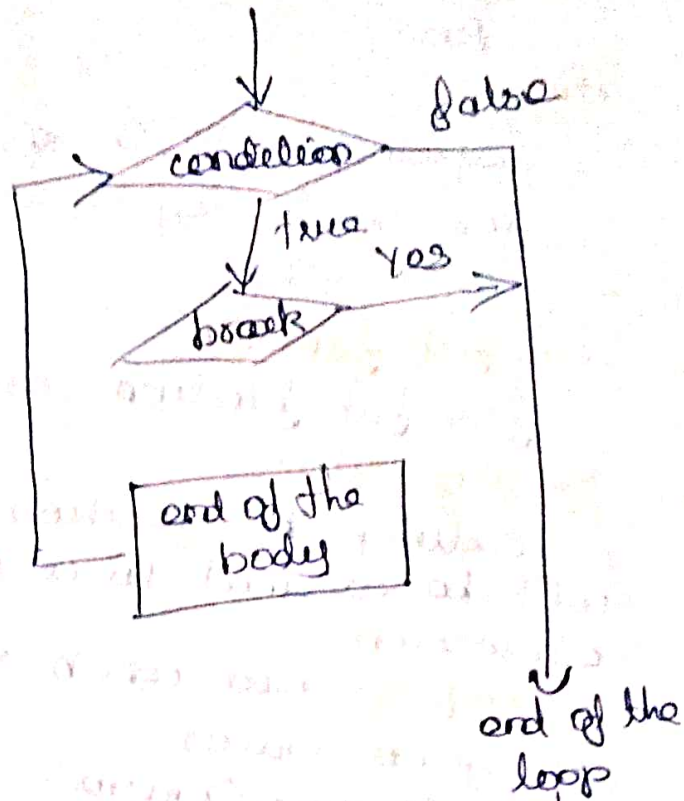 false
condition
true
Yes
break
end of the
body
end of the
loop